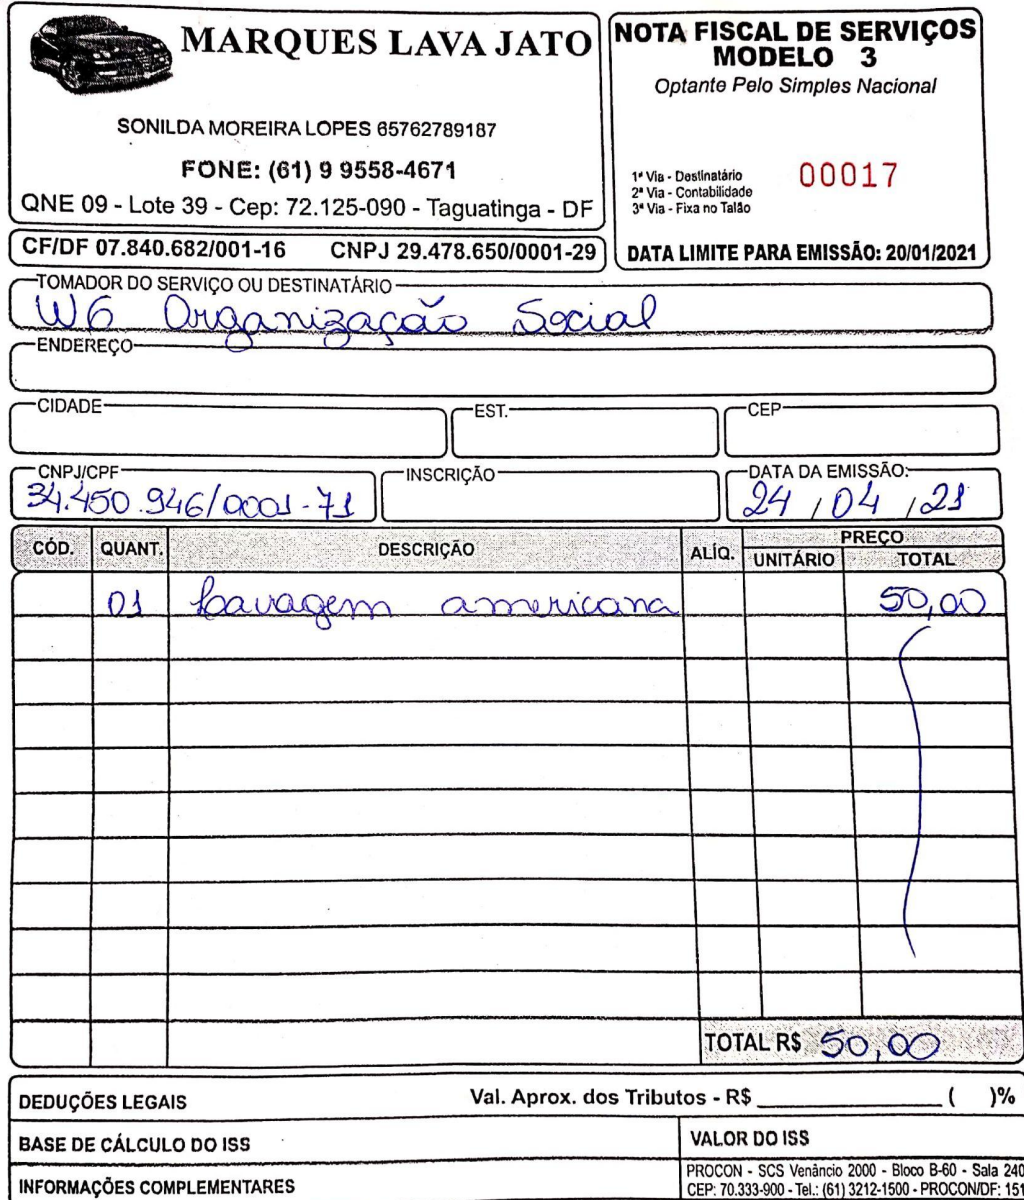 MARQUES LAVA JATO
SONILDA MOREIRA LOPES 65762789187
FONE: (61) 9 9558-4671
QNE 09 - Lote 39 - Cep: 72.125-090 - Taguatinga - DF
CF/DF 07.840.682/001-16 CNPJ 29.478.650/0001-29
NOTA FISCAL DE SERVIÇOS
MODELO 3
Optante Pelo Simples Nacional
1ª Via - Destinatário
2ª Via - Contabilidade
3ª Via - Fixa no Talão
00017
DATA LIMITE PARA EMISSÃO: 20/01/2021
TOMADOR DO SERVIÇO OU DESTINATÁRIO
W6 Organização Social
ENDEREÇO
CIDADE EST. CEP
CNPJ/CPF INSCRIÇÃO DATA DA EMISSÃO:
34.450.946/0001-71 24/04/21
CÓD. QUANT. DESCRIÇÃO ALÍQ. PREÇO
UNITÁRIO TOTAL
01 Lavagem americana 50,00
TOTAL R$ 50,00
DEDUÇÕES LEGAIS Val. Aprox. dos Tributos - R$ ( )%
BASE DE CÁLCULO DO ISS VALOR DO ISS
INFORMAÇÕES COMPLEMENTARES
PROCON - SCS Venâncio 2000 - Bloco B-60 - Sala 240
CEP: 70.333-900 - Tel.: (61) 3212-1500 - PROCON/DF: 151